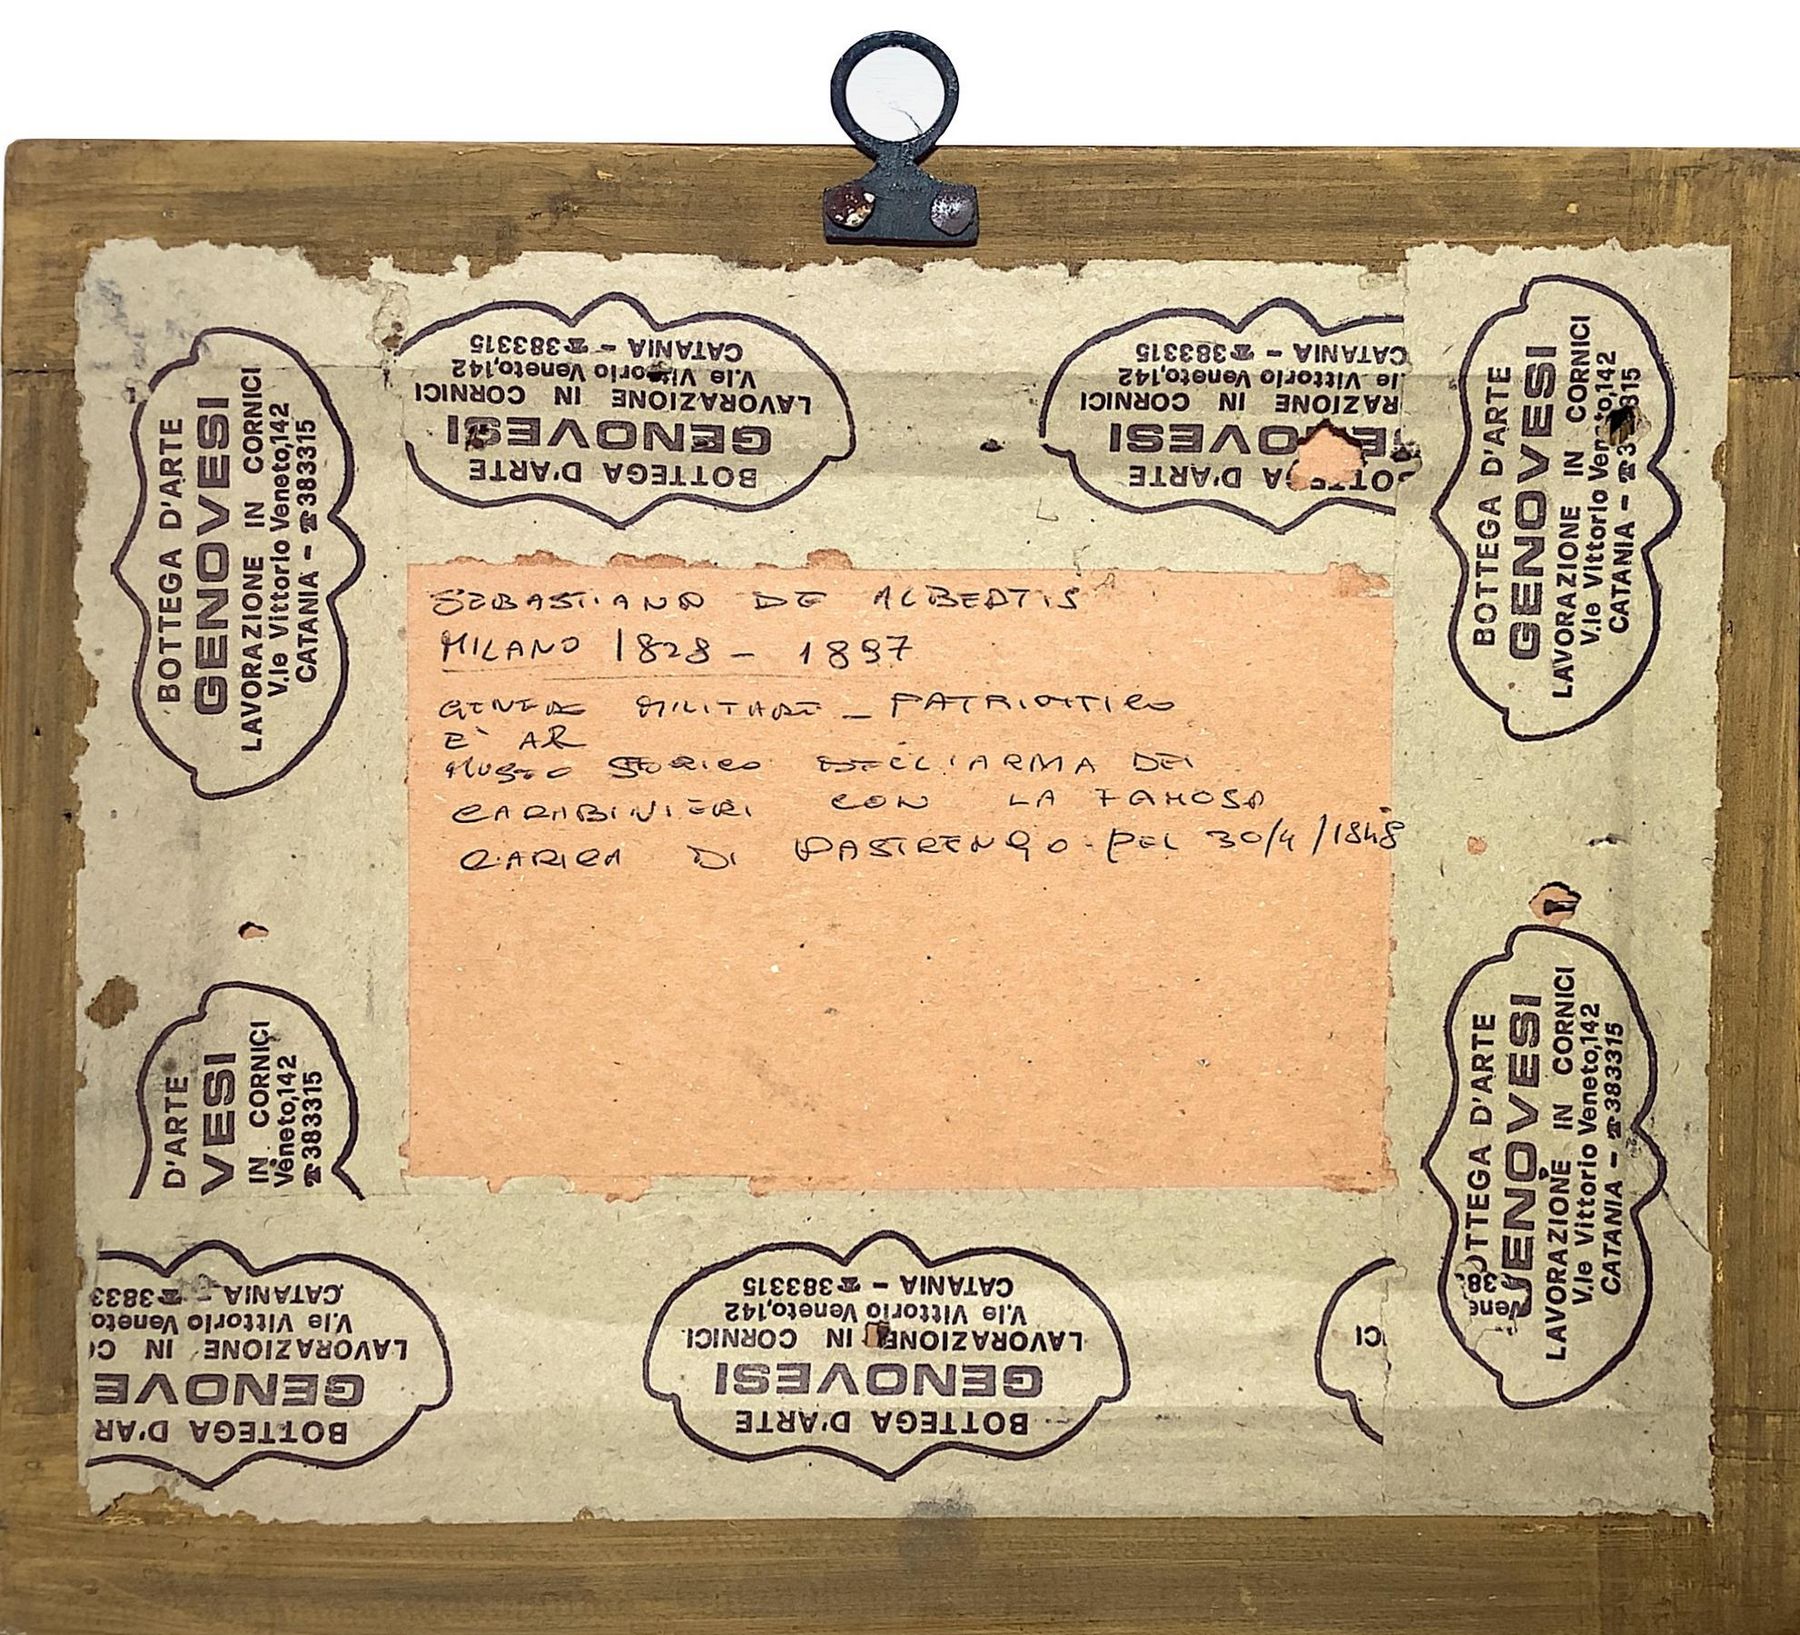 CATANIA - ☎383315
V.le Vittorio Veneto,142
LAVORAZIONE IN CORNICI
GENOVESI
BOTTEGA D'ARTE
CATANIA - ☎383315
le Vittorio Veneto,142
RAZIONE IN CORNICI
GENOVESI
BOTTEGA D'ARTE
GENOVESI
LAVORAZIONE IN CORNICI
V.le Vittorio Veneto,142
CATANIA - ☎383315
BOTTEGA D'ARTE
GENOVESI
LAVORAZIONE IN CORNICI
V.le Vittorio Veneto,142
CATANIA - ☎383315
SEBASTIANO DE ALBERTIS
MILANO 1828 - 1897
GENERE MILITARE - PATRIOTTICO
E' AR
MUSEO STORICO DELL'ARMA DEI
CARABINIERI CON LA FAMOSA
CARICA DI PASTRENGO DEL 30/4/1848
D'ARTE
VESI
IN CORNICI
Veneto,142
☎383315
BOTTEGA D'ARTE
GENOVESI
LAVORAZIONE IN CORNICI
V.le Vittorio Veneto,142
CATANIA - ☎383315
CATANIA - ☎3833
V.le Vittorio Veneto
LAVORAZIONE IN CO
GENOVE
BOTTEGA D'AR
CATANIA - ☎383315
V.le Vittorio Veneto,142
LAVORAZIONE IN CORNICI
GENOVESI
BOTTEGA D'ARTE
CI